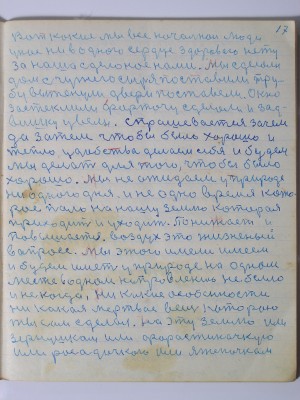 17
Вот какие мы все печальном люди
у нас ни в одного сердце здорового нету
За наше сделоное нами. Мы сделали
дом с чужего сырья поставили тру-
бу вытенули двери поставели. Окно
застеклили форточку сделали и зад-
вишку увели. Спрашевается зачем
да затем чтобы было хорошо и
тепло удобства делаем себя и будем
мы делать для того, чтобы было
хорошо. Мы не ожидали у природе
ни одного дня. и не одно время кото-
рое шло на нашу землю которая
приходит и уходит. Понижает и
повышает. воздух это жизненый
вапрос. Мы этого имели имеем
и будем иметь у природе на одном
месте водном направление не было
и некогда, Ни какие особености
ни какая мертвае вещ которою
мы сами сделали. на эту Землю или
зернушком или
или росадочкою или яичечкам